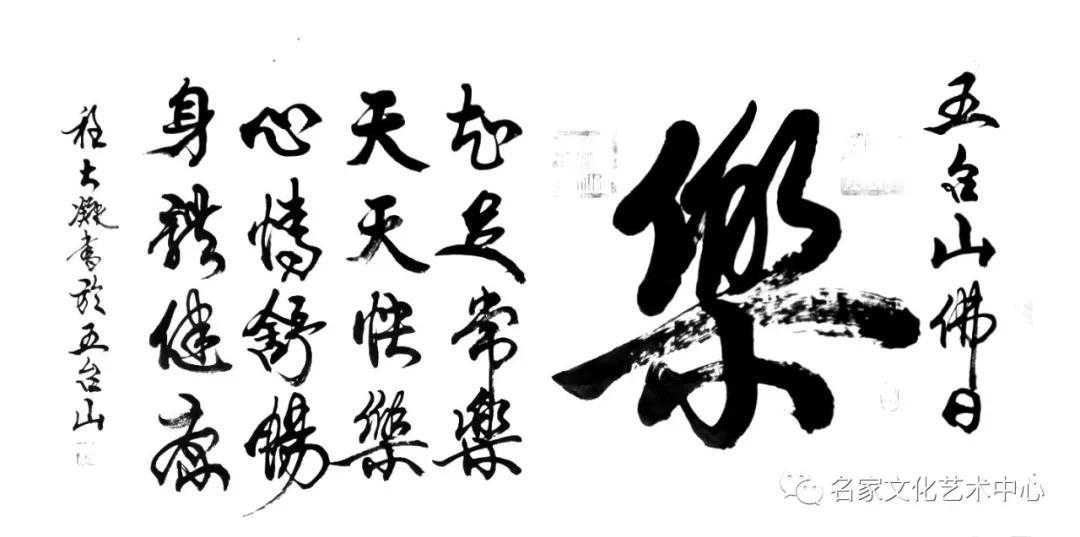 五台山佛日
樂
知足常樂
天天快樂
心情舒暢
身體健康
程大凝書於五台山
名家文化艺术中心